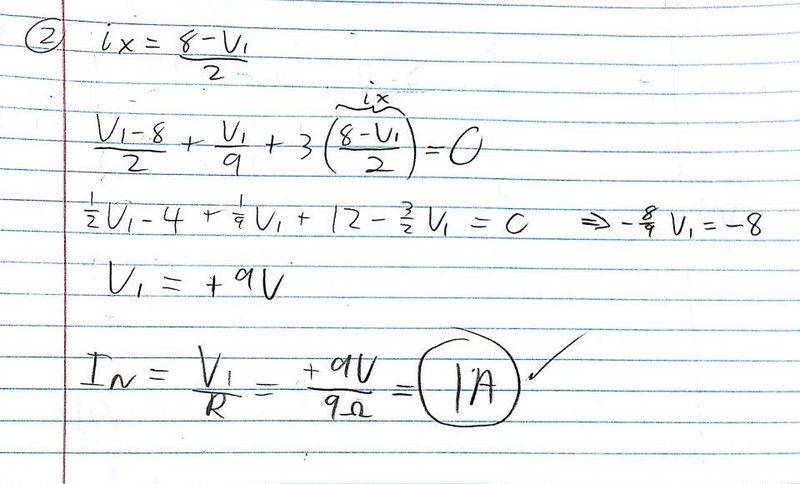 ② ix = (8-V₁)/2
(V₁-8)/2 + V₁/9 + 3((8-V₁)/2) = 0 ix
½V₁ - 4 + ⅑V₁ + 12 - 3/2 V₁ = 0 ⇒ -8/9 V₁ = -8
V₁ = +9V
I_N = V₁/R = +9V/9Ω = 1A ✓